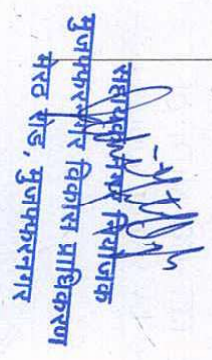 सहायक नगर नियोजक
मुजफ्फरनगर विकास प्राधिकरण
मेरठ रोड, मुजफ्फरनगर